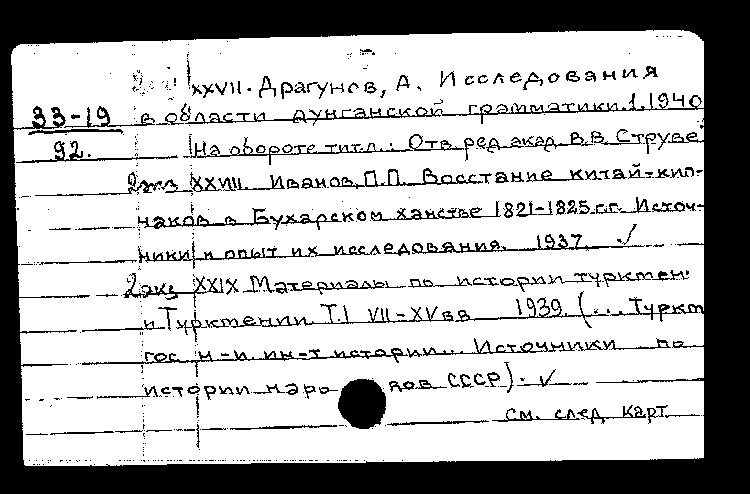 XXVII. Драгунов, А. Исследования
33-19 в области дунганской грамматики.1.1940
92. На обороте титл.: Отв ред акад В.В. Струве
2экз XXVIII. Иванов, П.П. Восстание китай-кип-
чаков в Бухарском ханстве 1821-1825 г.г. Источ-
ники и опыт их исследования. 1937. ✓
2экз XXIX Материалы по истории турктен
и Турктении. Т.I VII-XV в.в 1939. (... Туркт
гос н-и. ин-т истории... Источники по
истории наро дов СССР). ✓
см. след. карт